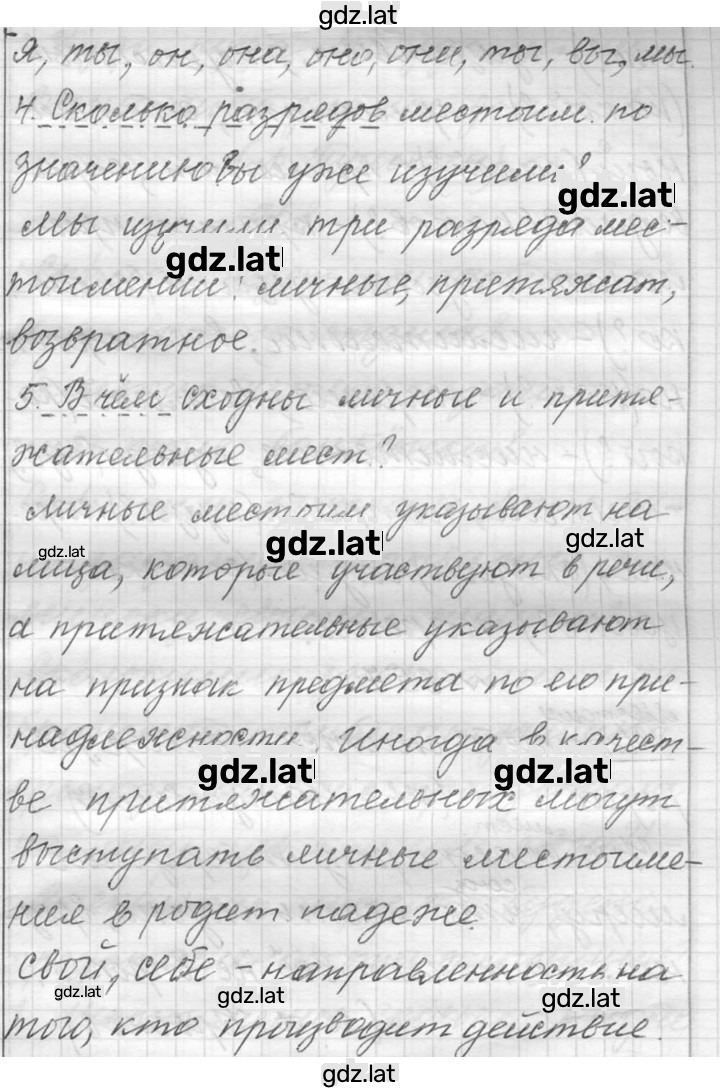 gdz.lat
я, ты, он, она, оно, они, ты, вы, мы.
4. Сколько разрядов местоим. по
значению вы уже изучили?
gdz.lat
Мы изучили три разряда мес-
gdz.lat
тоимений: личные, притяжат,
возвратное.
5. В чём сходны личные и притя-
жательные мест.?
Личные местоим указывают на
gdz.lat gdz.lat gdz.lat
лица, которые участвуют в речи,
а притяжательные указывают
на признак предмета по его при-
надлежности. Иногда в качест-
gdz.lat gdz.lat
ве притяжательных могут
выступать личные местоиме-
ния в родит падеже.
Свой, себе - направленность на
gdz.lat gdz.lat gdz.lat
того, кто производит действие.
gdz.lat